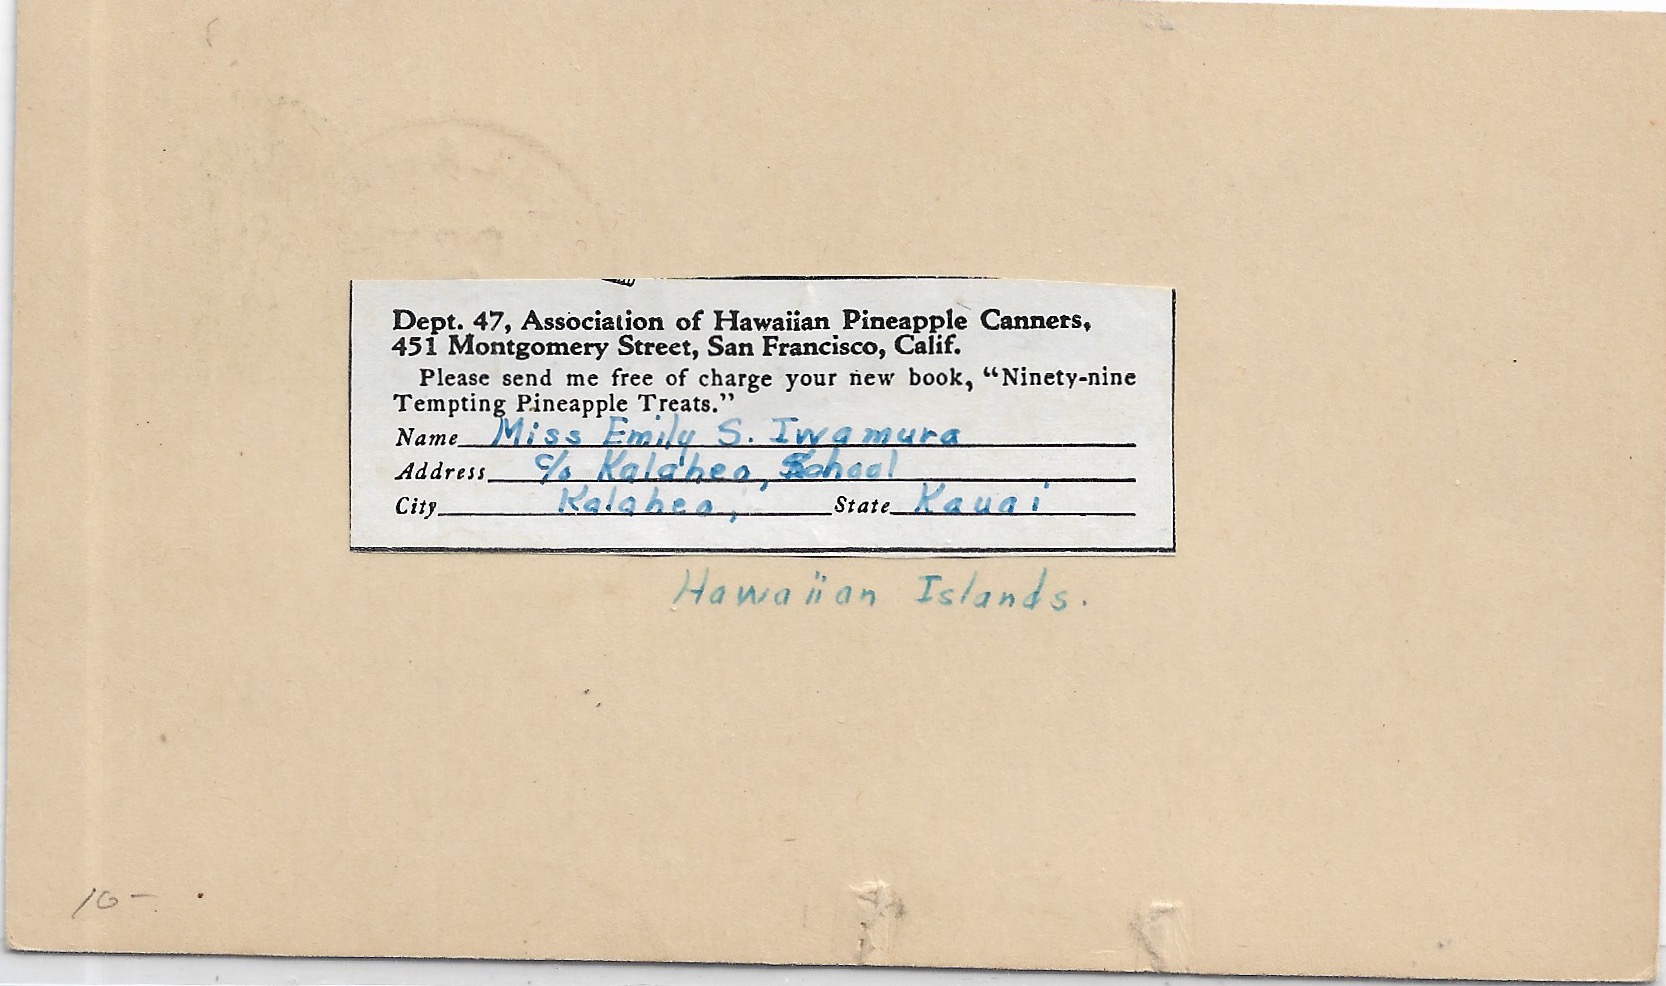 Dept. 47, Association of Hawaiian Pineapple Canners,
451 Montgomery Street, San Francisco, Calif.
Please send me free of charge your new book, “Ninety-nine
Tempting Pineapple Treats.”
Name Miss Emily S. Iwamura
Address c/o Kalaheo, School
City Kalaheo, State Kauai
Hawaiian Islands.
10-